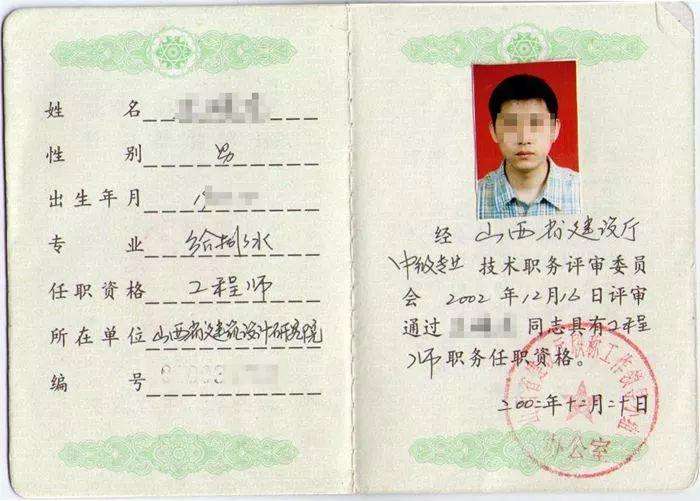 姓名
性别 男
出生年月 19
专业 给排水
任职资格 工程师
所在单位 山西省建筑设计研究院
编号
经 山西省建设厅
中级专业 技术职务评审委员
会 2002 年 12 月 16 日评审
通过 同志具有工程
师 职务任职资格。
二00二年十二月二十日
办公室